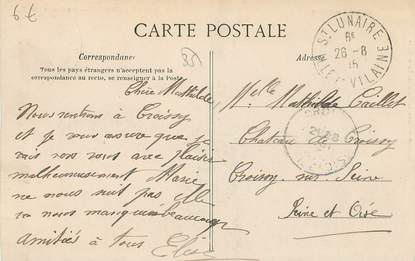 6 €
CARTE POSTALE
ST LUNAIRE
8E
26-8
15
ILLE ET VILAINE
Correspondance
35
Adresse
Tous les pays étrangers n'acceptent pas la
correspondance au recto, se renseigner à la Poste
Chère Mathilde
Nous rentrons à Croissy
et je vous assure que je
vais vous voir avec plaisir
malheureusement Marie
ne nous suit pas elle
va nous manquer beaucoup
amitiés à tous
Melle Mathilde Caillet
Chateau de Croissy
Croissy sur Seine
Seine et Oise